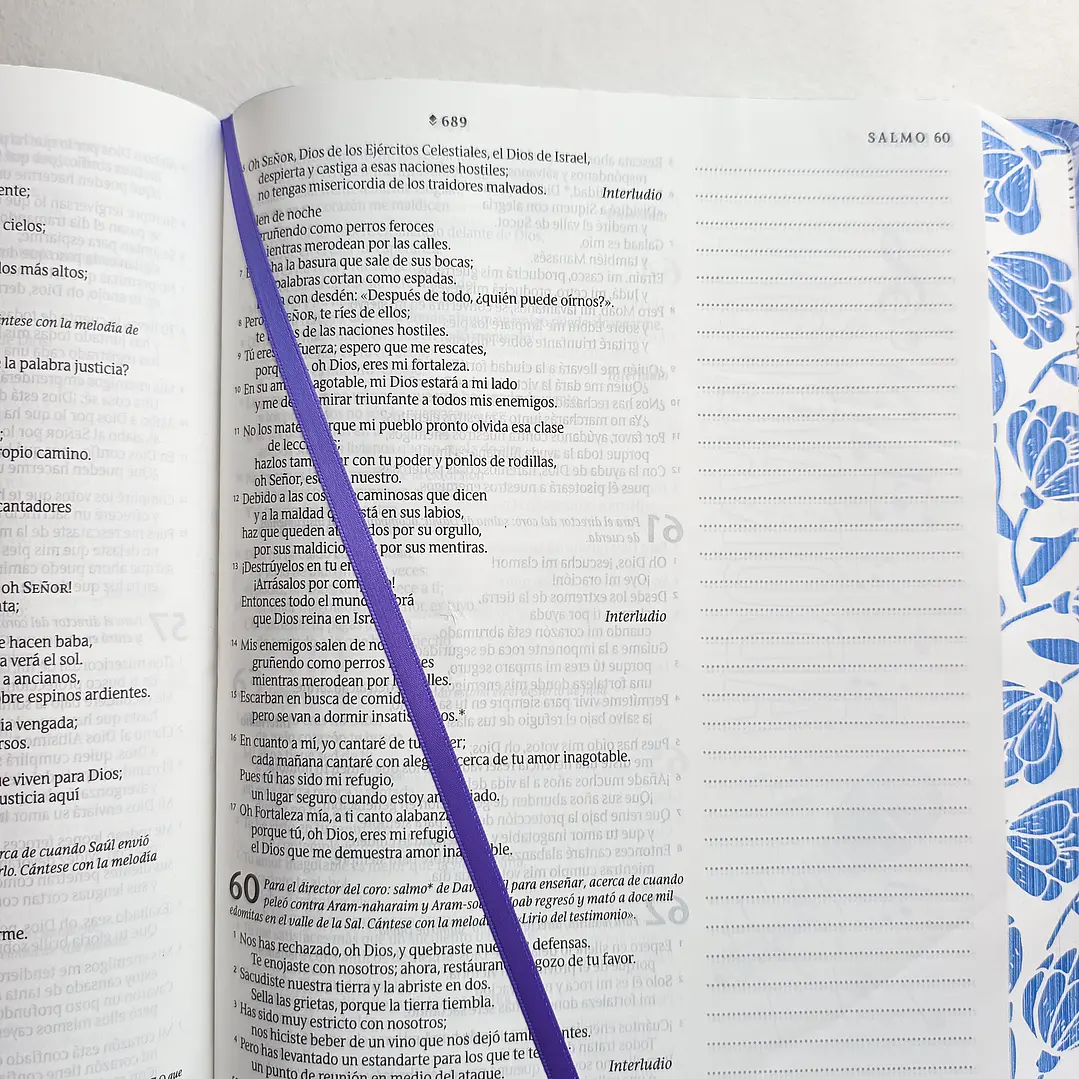 ente;
cielos;
los más altos;
ntese con la melodía de
la palabra justicia?
ropio camino.
cantadores
oh SEÑOR!
ta;
e hacen baba,
a verá el sol.
a ancianos,
obre espinos ardientes.
ia vengada;
rsos.
ue viven para Dios;
usticia aquí
rca de cuando Saúl envió
rlo. Cántese con la melodía
rme.
689
SALMO 60
Oh SEÑOR, Dios de los Ejércitos Celestiales, el Dios de Israel,
despierta y castiga a esas naciones hostiles;
no tengas misericordia de los traidores malvados. Interludio
len de noche
gruñendo como perros feroces
ientras merodean por las calles.
7 ha la basura que sale de sus bocas;
palabras cortan como espadas.
con desdén: «Después de todo, ¿quién puede oírnos?».
8 Pero SEÑOR, te ríes de ellos;
te s de las naciones hostiles.
9 Tú eres fuerza; espero que me rescates,
porq oh Dios, eres mi fortaleza.
10 En su am agotable, mi Dios estará a mi lado
y me de mirar triunfante a todos mis enemigos.
11 No los mate rque mi pueblo pronto olvida esa clase
de lecc ;
hazlos tam r con tu poder y ponlos de rodillas,
oh Señor, es nuestro.
12 Debido a las cos caminosas que dicen
y a la maldad q stá en sus labios,
haz que queden at dos por su orgullo,
por sus maldicio por sus mentiras.
13 ¡Destrúyelos en tu en
¡Arrásalos por com o!
Entonces todo el mund brá
que Dios reina en Isra Interludio
14 Mis enemigos salen de no
gruñendo como perros es
mientras merodean por l lles.
15 Escarban en busca de comid
pero se van a dormir insatis os.*
16 En cuanto a mí, yo cantaré de tu er;
cada mañana cantaré con aleg cerca de tu amor inagotable.
Pues tú has sido mi refugio,
un lugar seguro cuando estoy an ado.
17 Oh Fortaleza mía, a ti canto alabanz
porque tú, oh Dios, eres mi refugio
el Dios que me demuestra amor ina ble.
60 Para el director del coro: salmo* de Dav il para enseñar, acerca de cuando
peleó contra Aram-naharaim y Aram-so Joab regresó y mató a doce mil
edomitas en el valle de la Sal. Cántese con la melod «Lirio del testimonio».
1 Nos has rechazado, oh Dios, y quebraste nue defensas.
Te enojaste con nosotros; ahora, restáuran gozo de tu favor.
2 Sacudiste nuestra tierra y la abriste en dos.
Sella las grietas, porque la tierra tiembla.
3 Has sido muy estricto con nosotros;
nos hiciste beber de un vino que nos dejó tamb antes.
4 Pero has levantado un estandarte para los que te te
un punto de reunión en medio del ataque. Interludio